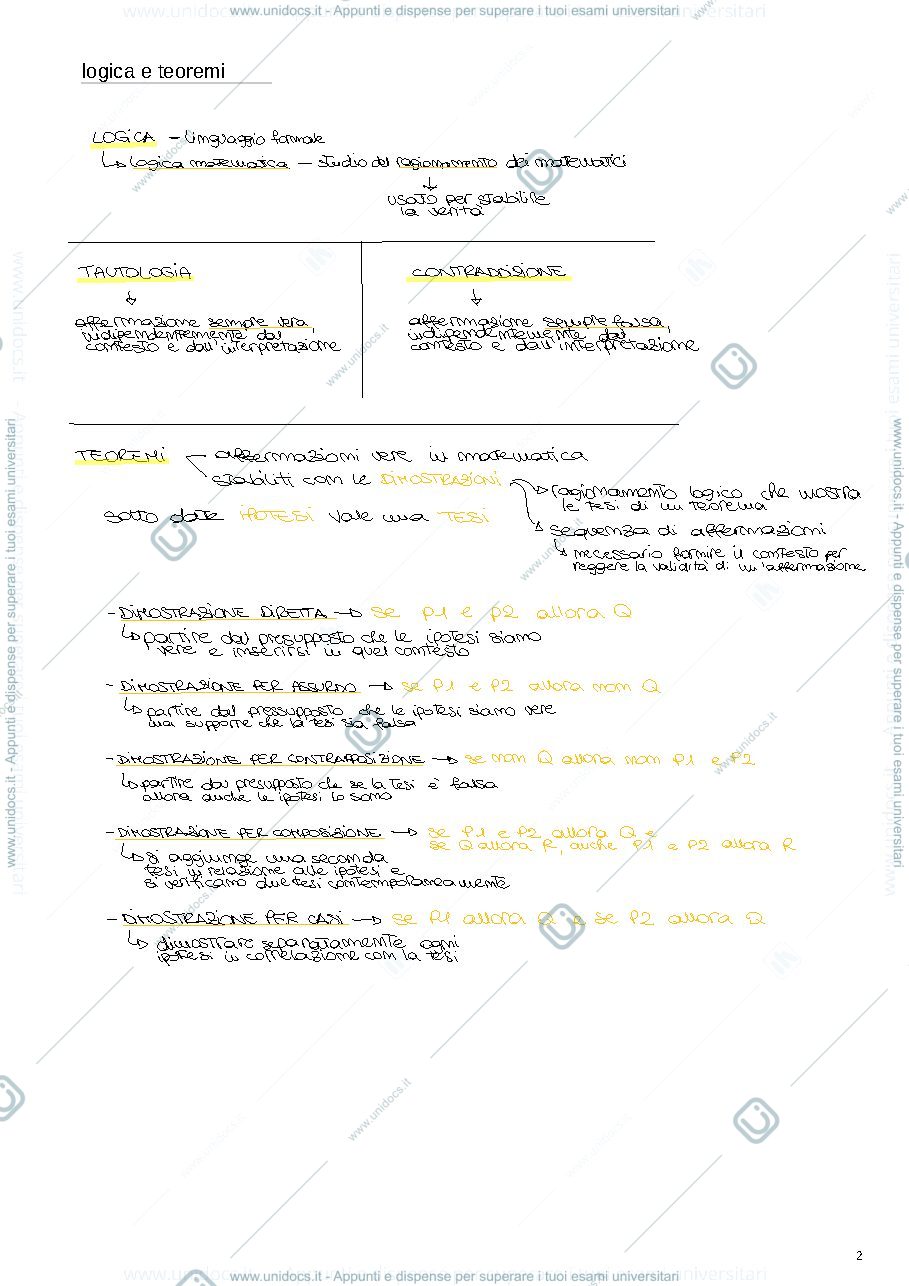 www.unidocs.it - Appunti e dispense per superare i tuoi esami universitari
logica e teoremi
LOGICA - linguaggio formale
↳ logica matematica - studio del ragionamento dei matematici
↓
usato per stabilire
la verità
TAUTOLOGIA
↓
affermazione sempre vera,
indipendentemente dal
contesto e dall'interpretazione
CONTRADDIZIONE
↓
affermazione sempre falsa,
indipendentemente dal
contesto e dall'interpretazione
TEOREMI affermazioni vere in matematica
stabiliti con le DIMOSTRAZIONI
→ ragionamento logico che mostra
le tesi di un teorema
→ sequenza di affermazioni
↳ necessario fornire il contesto per
reggere la validità di un'affermazione
sotto date IPOTESI vale una TESI
- DIMOSTRAZIONE DIRETTA → se P1 e P2 allora Q
↳ partire dal presupposto che le ipotesi siano
vere e inserirsi in quel contesto
- DIMOSTRAZIONE PER ASSURDO → se P1 e P2 allora non Q
↳ partire dal presupposto che le ipotesi siano vere
ma supporre che la tesi sia falsa
- DIMOSTRAZIONE PER CONTRAPPOSIZIONE → se non Q allora non P1 e P2
↳ partire dal presupposto che se la tesi è falsa
allora anche le ipotesi lo sono
- DIMOSTRAZIONE PER COMPOSIZIONE → se P1 e P2 allora Q e
se Q allora R, anche P1 e P2 allora R
↳ si aggiunge una seconda
tesi in relazione alle ipotesi e
si verificano due tesi contemporaneamente
- DIMOSTRAZIONE PER CASI → se P1 allora Q e se P2 allora Q
↳ dimostrare separatamente ogni
ipotesi in correlazione con la tesi
2
www.unidocs.it - Appunti e dispense per superare i tuoi esami universitari